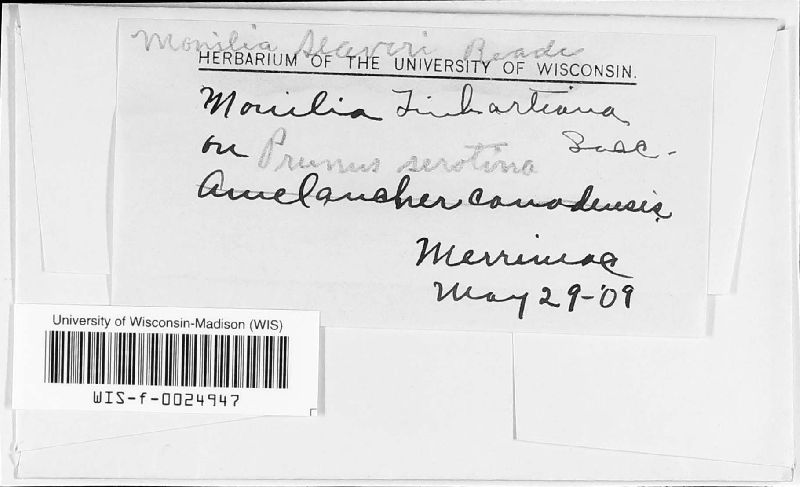 Monilia Seaveri Reade
HERBARIUM OF THE UNIVERSITY OF WISCONSIN.
Monilia Linhartiana
Sacc.
on Prunus serotina
Amelancher canadensis
Merrimac
May 29-'09
University of Wisconsin-Madison (WIS)
WIS-f-0024947